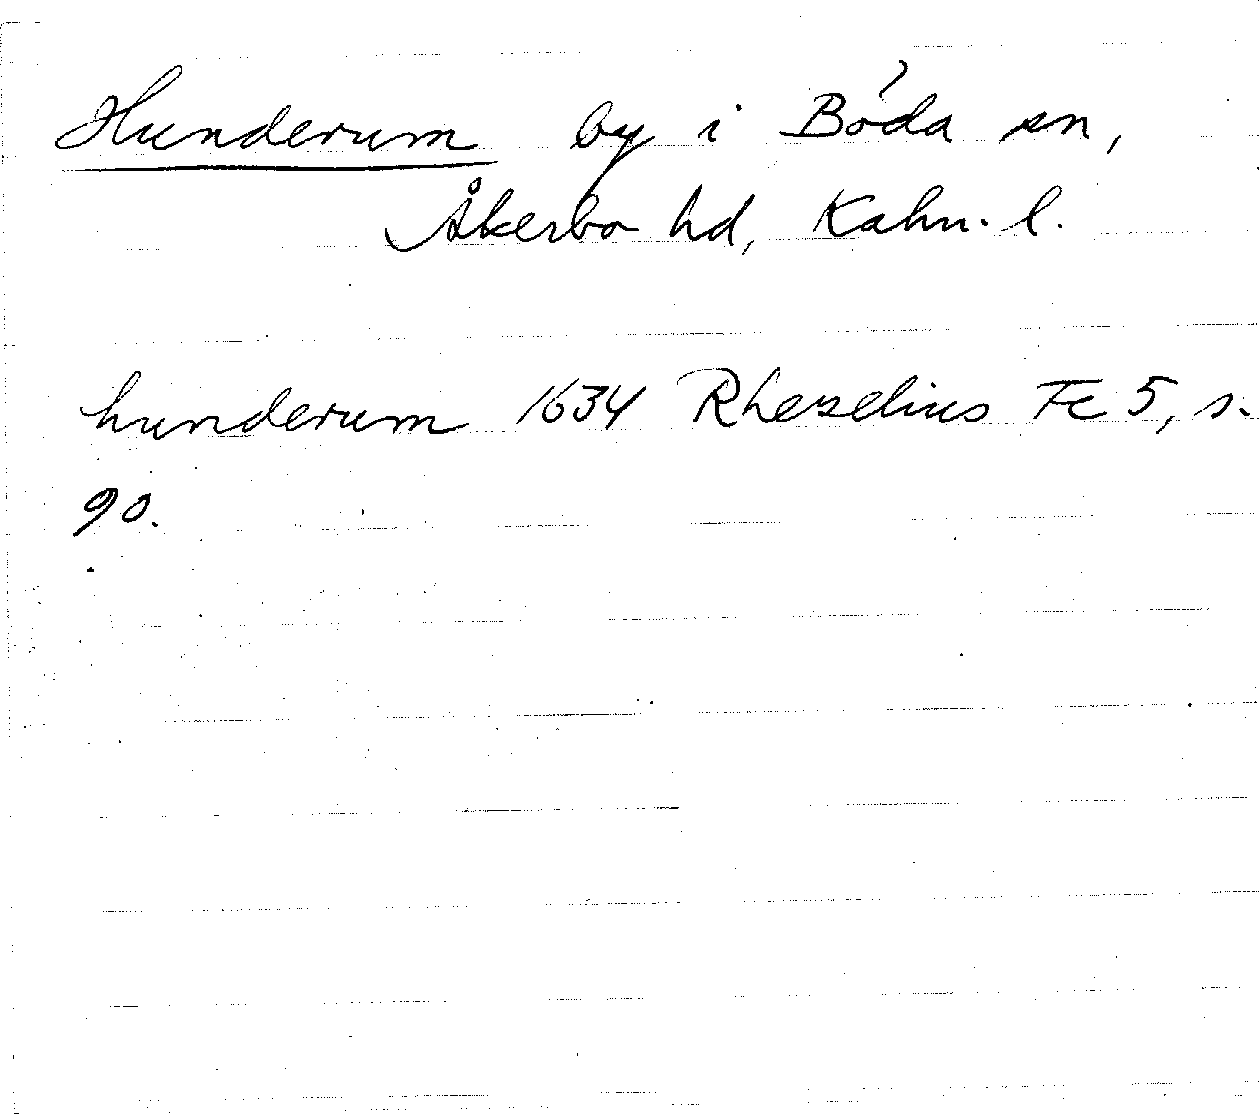 Hunderum by i Böda sn,
Åkerbo hd, Kalm. l.
hunderum 1634 Rhezelius Fc 5, s.
90.